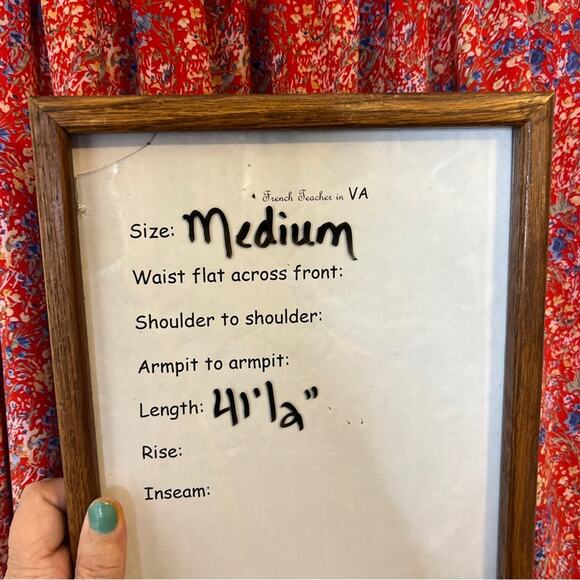 French Teacher in VA
Size: Medium
Waist flat across front:
Shoulder to shoulder:
Armpit to armpit:
Length: 41 1/2"
Rise:
Inseam: